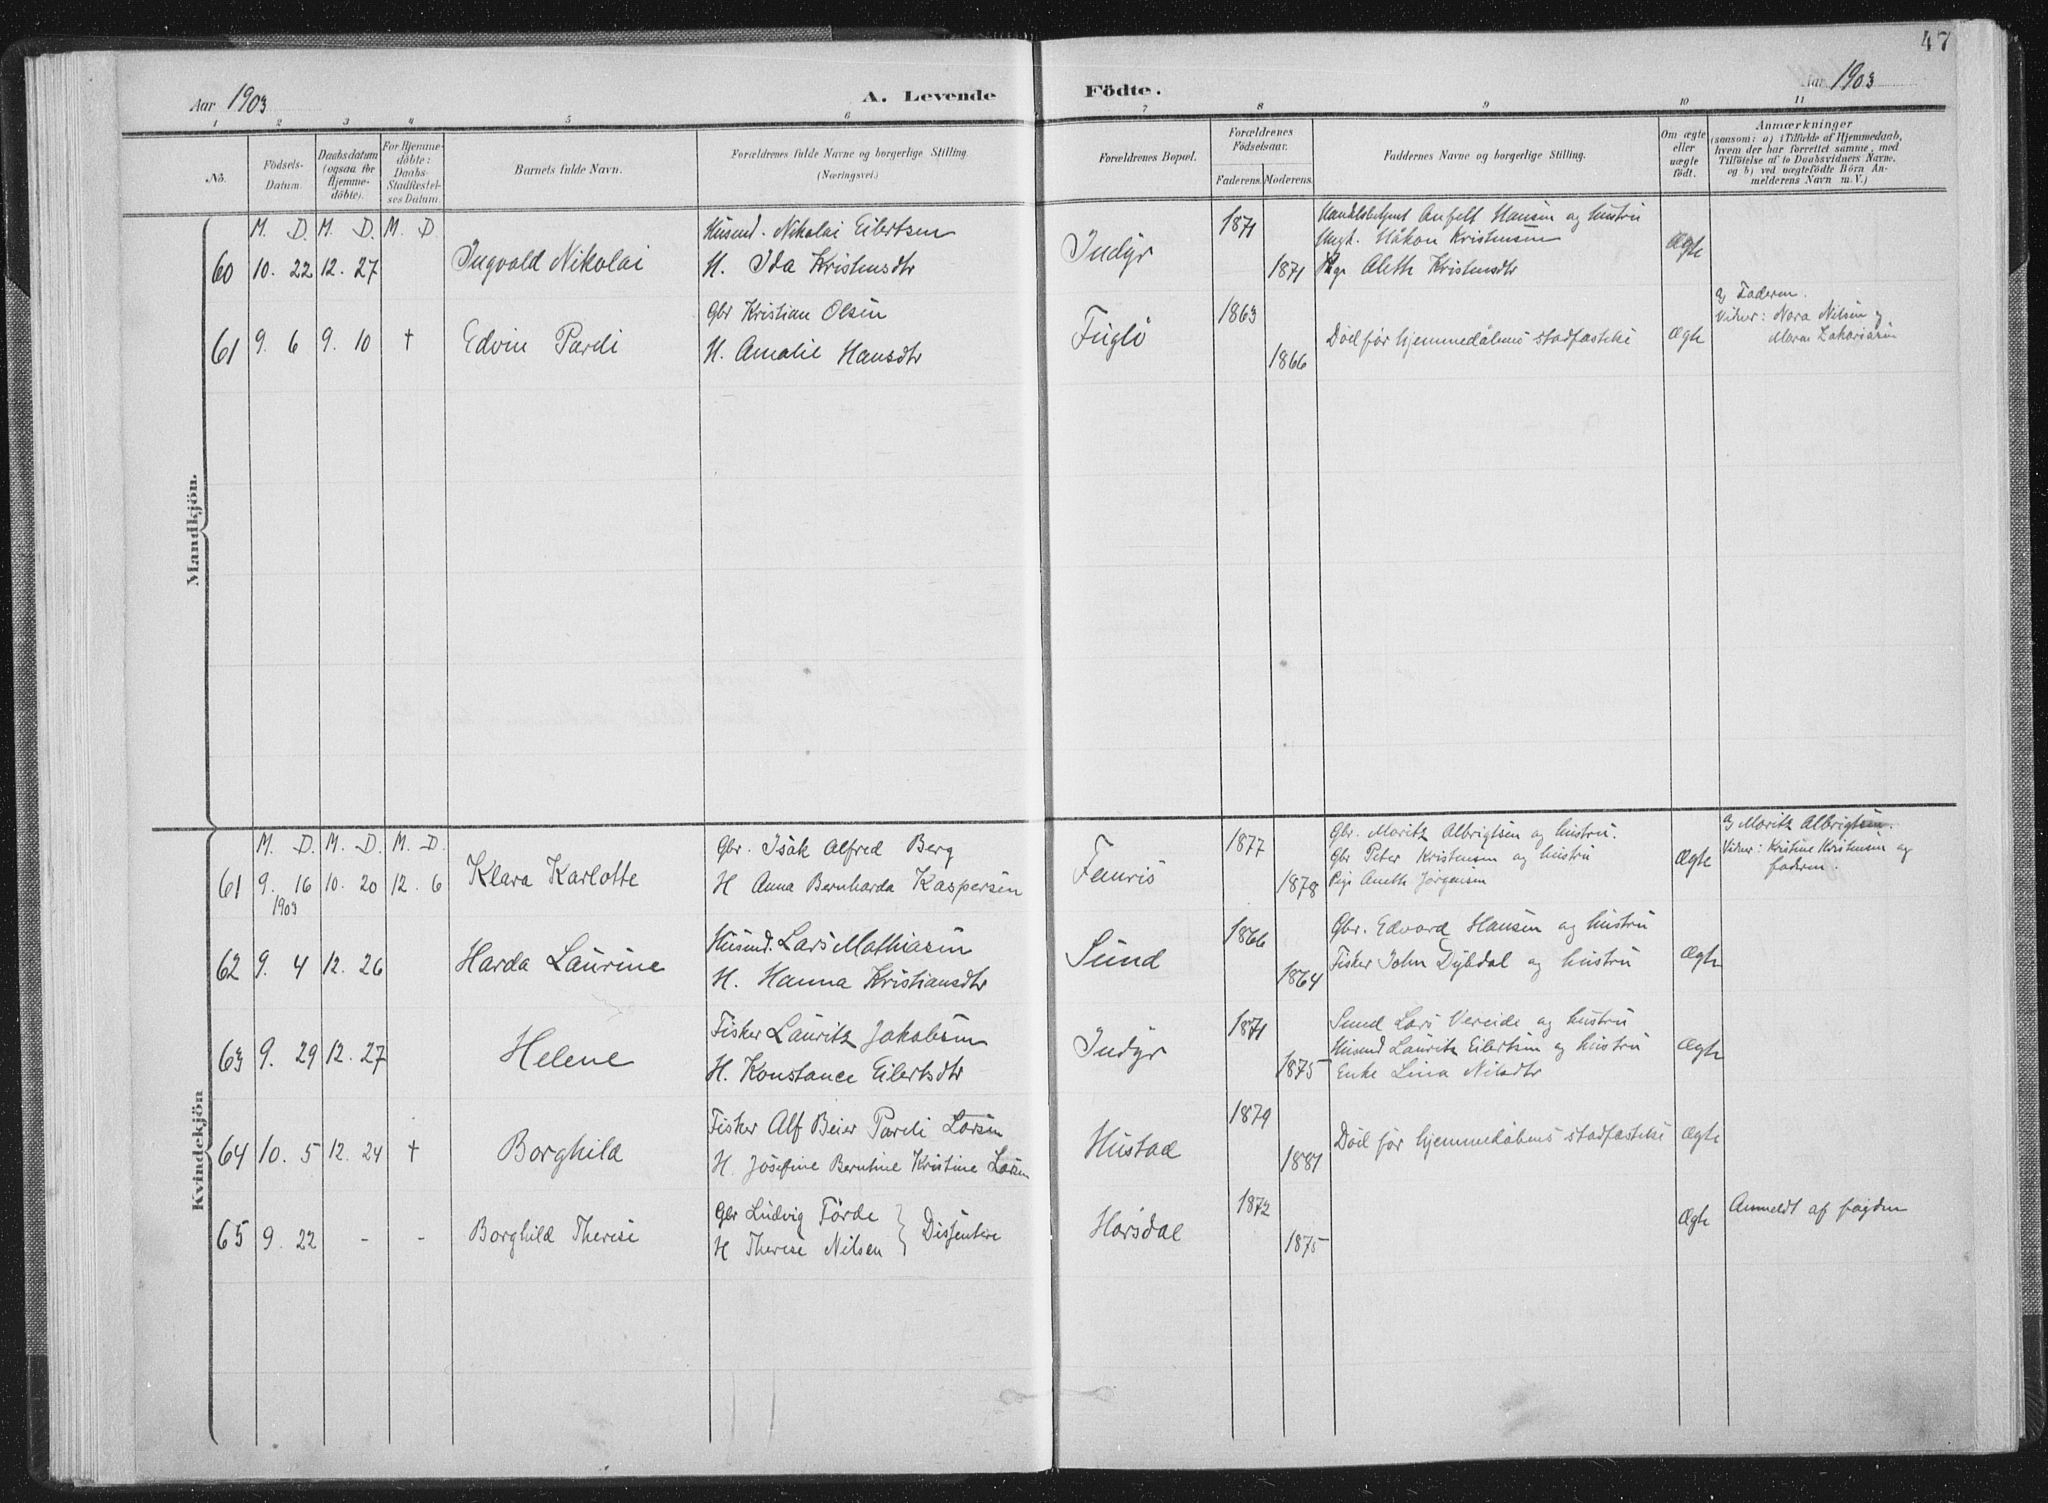 47
Aar 1903
A. Levende
Födte.
Aar 1903
1 2 3 4 5 6 7 8 9 10 11
No.
Födsels-
Datum.
Daabsdatum
(ogsaa for
Hjemme-
döbte).
For Hjemme-
döbte:
Daabs-
Stadfæstel-
ses Datum.
Barnets fulde Navn.
Forældrenes fulde Navne og borgerlige Stilling.
(Næringsvei.)
Forældrenes Bopæl.
Forældrenes
Födselsaar.
Faderens. Moderens.
Faddernes Navne og borgerlige Stilling.
Om ægte
eller
uægte
födt.
Anmærkninger
(saasom: a) i Tilfælde af Hjemmedaab,
hvem der har forrettet samme, med
Tilföielse af to Daabsvidners Navne,
og b) ved uægtefödte Börn An-
melderens Navn m. V.)
Mandkjön.
M. D. M. D. M. D.
60 10. 22 12. 27
Ingvald Nikolai
Husmd. Nikolai Eilertsen
H. Ida Kristensdtr
Indyr
1871
1871
Handelsbetjent Anfelt Hansen og hustru
Ungk. Håkon Kristensen
Pige Aleth Kristensdtr
Ægte
61 9. 6 9. 10 +
Edvin Pareli
Gbr Kristian Olsen
H. Amalie Hansdtr
Fuglö
1863
1866
Död før hjemmedåbens stadfæstelse
Ægte
a) Faderen.
Vidner: Nora Nilsen og
Maren Zakariasen
Kvindekjön
M. D. M. D. M. D.
61 9. 16 10. 20 12. 6
1903
Klara Karlotte
Gbr. Isak Alfred Berg
H Anna Bernharda Kaspersen
Fenris
1877
1878
Gbr. Moritz Albrigtsen og hustru.
Gbr Peter Kristensen og hustru
Pige Aneth Jørgensen
Ægte
a) Moritz Albrigtsen.
Vidner: Kristine Kristensen og
faderen.
62 9. 4 12. 26
Harda Laurine
Husmd. Lars Mathiasen
H. Hanna Kristiansdtr
Sund
1866
1864
Gbr. Edvard Hansen og hustru
Fisker John Dybdal og hustru
Ægte
63 9. 29 12. 27
Helene
Fisker Lauritz Jakobsen
H. Konstance Eilertsdtr
Indyr
1871
1875
Smed Lars Vereide og hustru
Husmd Lauritz Eilertsen og hustru
Enke Lina Nilsdtr
Ægte
64 10. 5 12. 24 +
Borghild
Fisker Alf Beier Pareli Larsen
H. Josefine Berntine Kristine Larsen
Hustad
1879
1881
Död før hjemmedåbens stadfæstelse
Ægte
65 9. 22 - -
Borghild Therese
Gbr Ludvig Förde
H Therese Nilsen } Dissentere
Horsdal
1872
1875
Ægte
Anmeldt af fogden